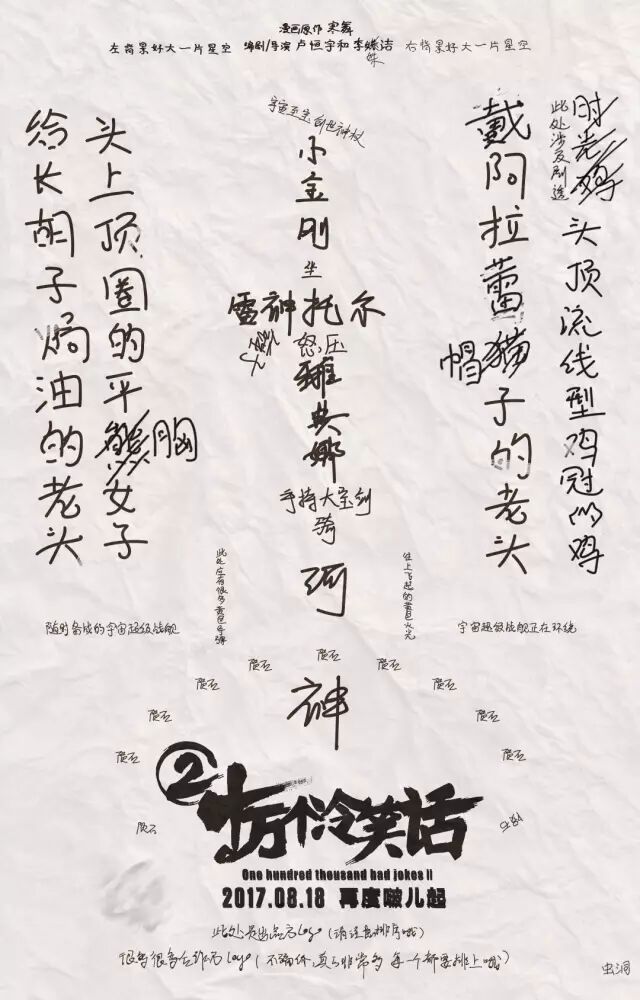 漫画原作 寒舞
左背景好大一片星空 编剧/导演 卢恒宇和李姝洁 右背景好大一片星空
宇宙至宝创世神杖
小金刚
坐
雷神托尔
怒压
雅典娜
手持大宝剑
骑
河
神
头上顶圈的平胸女子
给长胡子焗油的老头
时老鸡
此处涉及剧透
头顶流线型鸡冠的鸡
戴阿拉蕾猫帽子的老头
此处应有很多黄色导弹
往上飞起的黄色火光
随时备战的宇宙超级战舰
宇宙超级战舰正在环绕
陨石
陨石
陨石
陨石
陨石
陨石
陨石
陨石
陨石
陨石
2
十万个冷笑话
One hundred thousand bad jokes II
2017.08.18 再度啵儿起
此处是出品方logo（请注意排序哦）
很多很多合作方logo（不骗你，真的非常多 每一个都要排上哦）
虫洞